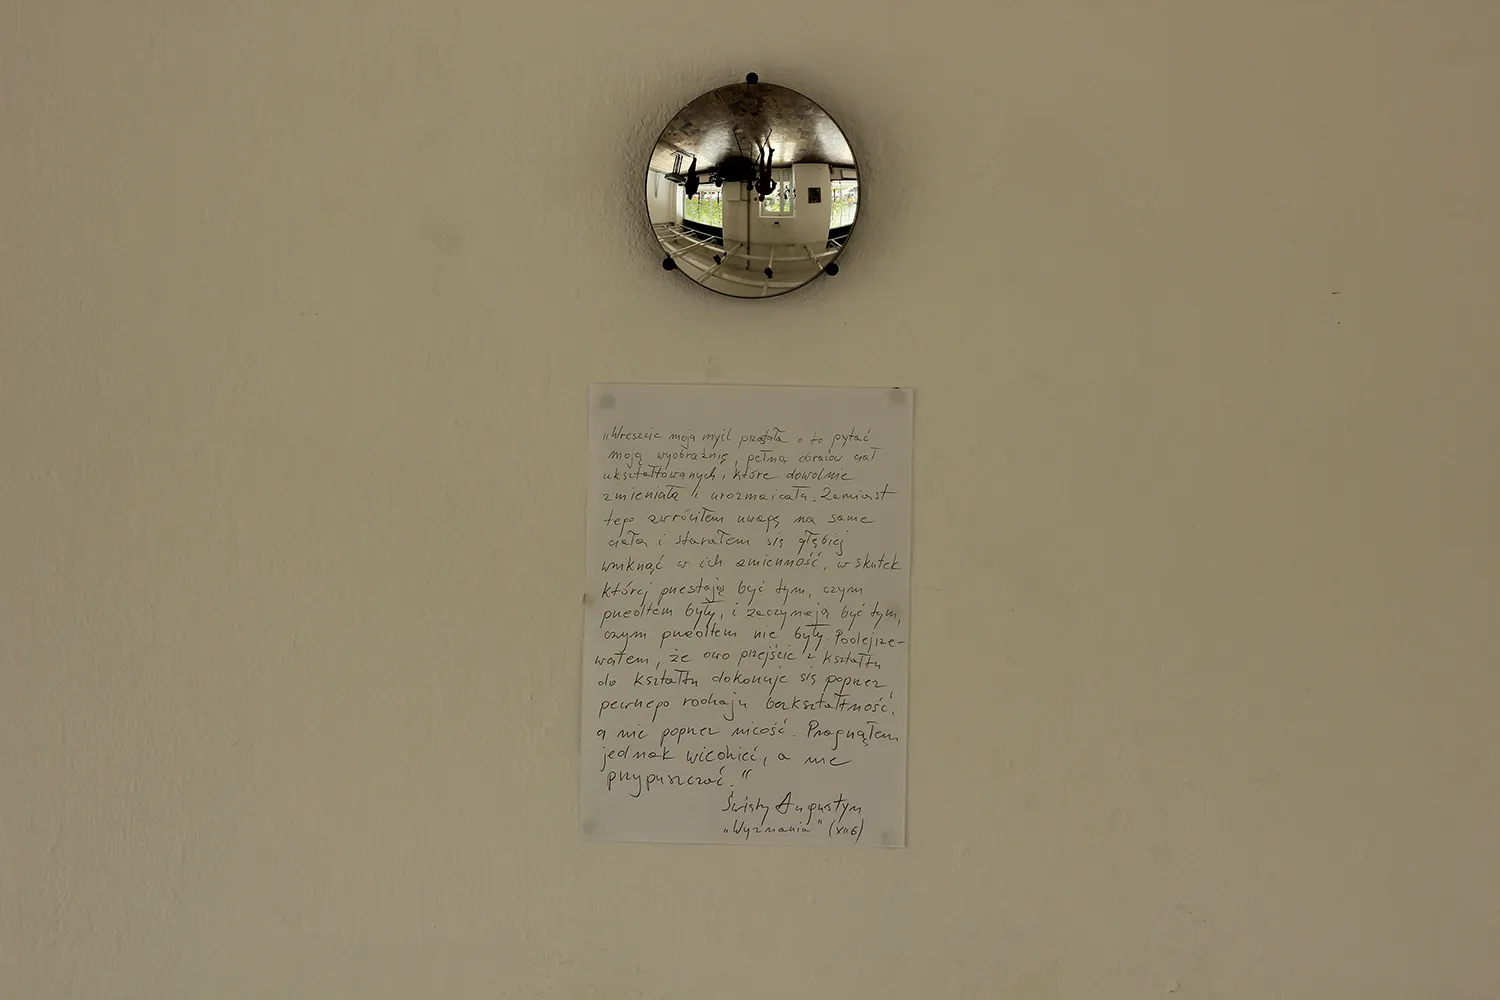 „Wreszcie moja myśl przestała o to pytać
moją wyobraźnię, pełną obrazów ciał
ukształtowanych, które dowolnie
zmieniała i urozmaicała. Zamiast
tego zwróciłem uwagę na same
ciała i starałem się głębiej
wniknąć w ich zmienność, w skutek
której przestają być tym, czym
przedtem były, i zaczynają być tym,
czym przedtem nie były. Podejrze-
wałem, że owo przejście z kształtu
do kształtu dokonuje się poprzez
pewnego rodzaju bezkształtność,
a nie poprzez nicość. Pragnąłem
jednak wiedzieć, a nie
przypuszczać."
Święty Augustyn
„Wyznania" (XII6)